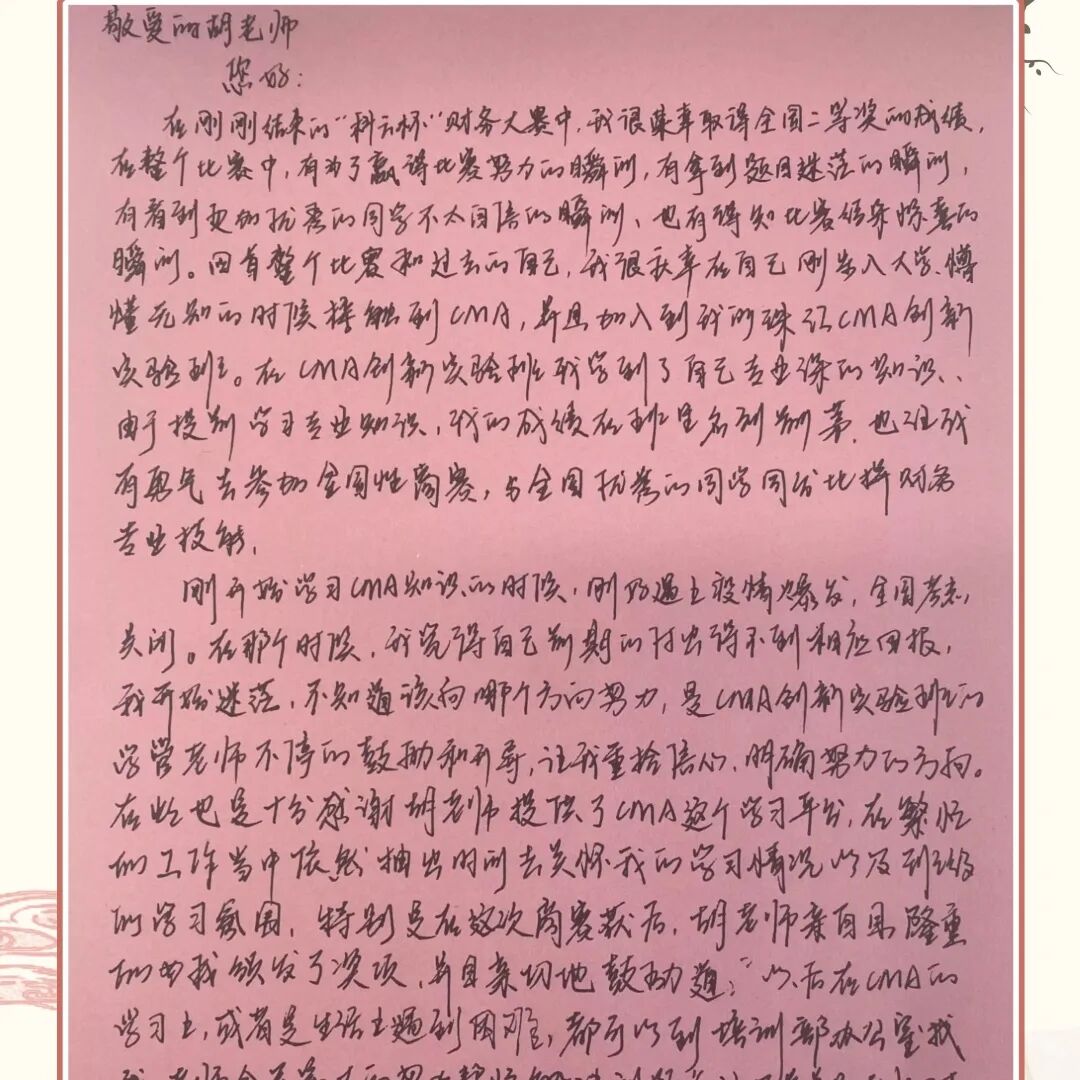 敬爱的胡老师
您好：
在刚刚结束的“科云杯”财务大赛中，我很荣幸取得全国二等奖的成绩，
在整个比赛中，有为了赢得比赛努力的瞬间，有拿到题目迷茫的瞬间，
有看到更加优秀的同学不太自信的瞬间、也有得知比赛结果惊喜的
瞬间。回首整个比赛和过去的自己，我很庆幸在自己刚步入大学、懵
懂无知的时候接触到CMA，并且加入到我所珠江CMA创新
实验班。在CMA创新实验班我学到了自己专业课的知识、
由于提前学习专业知识，我的成绩在班里名列前茅，也让我
有勇气去参加全国性商赛，与全国优秀的同学同台比拼财务
专业技能，
刚开始学习CMA知识的时候，刚好遇上疫情爆发，全国考点
关闭。在那个时候，我觉得自己前期的付出得不到相应回报，
我开始迷茫，不知道该向哪个方向努力，是CMA创新实验班的
学管老师不停的鼓励和开导，让我重拾信心、明确努力的方向。
在此也是十分感谢胡老师提供了CMA这个学习平台，在繁忙
的工作当中依然抽出时间去关怀我的学习情况以及到班级
的学习氛围，特别是在这次商赛获后，胡老师亲自且隆重
的为我颁发了奖项，并且亲切地鼓励道：“以后在CMA的
学习上，或者是生活上遇到困难，都可以到培训部办公室找